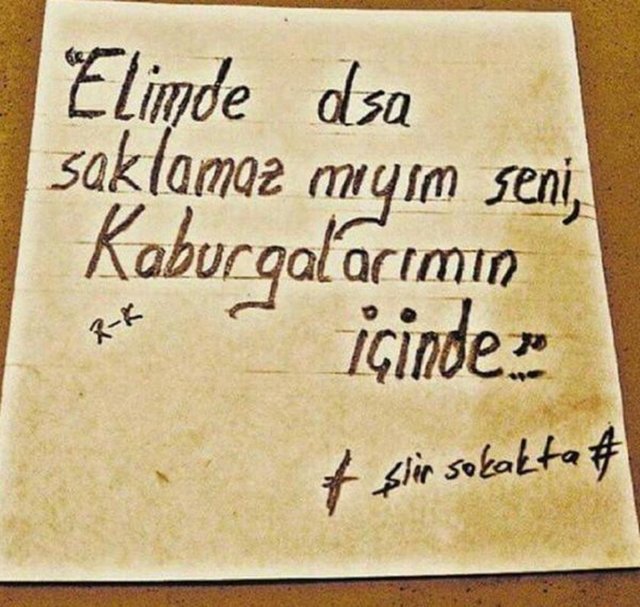 "Elimde olsa
saklamaz mıyım seni,
Kaburgalarımın
içinde..."
R-K
# şiir sokakta #